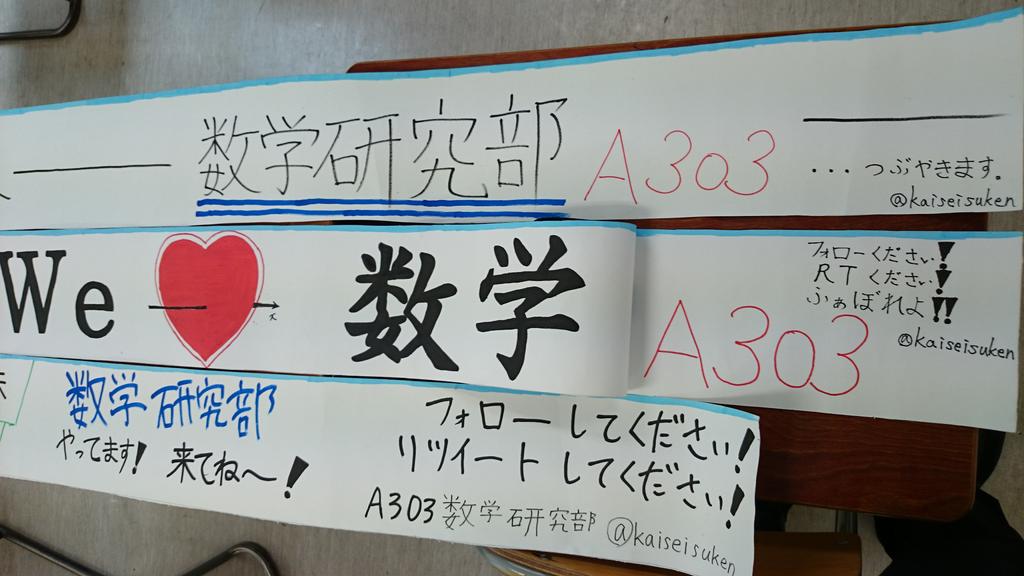 数学研究部 A303 ...つぶやきます。
@kaiseisuken
We 数学 A303
x
フォローください!
RTください!
ふぁぼれよ!!
@kaiseisuken
数学研究部
やってます! 来てね〜!
フォローしてください!
リツイートしてください!
A303 数学研究部 @kaiseisuken